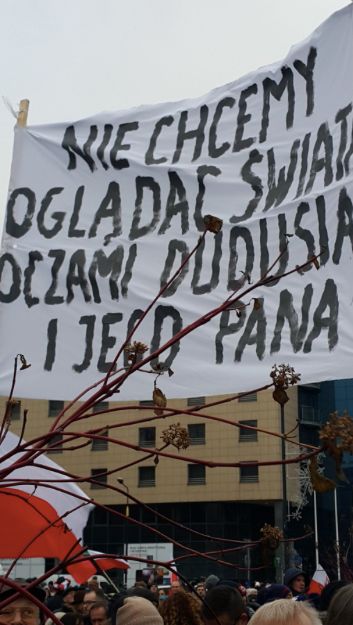 NIE CHCEMY
OGLĄDAĆ ŚWIATA
OCZAMI DUDUSIA
I JEGO PANA